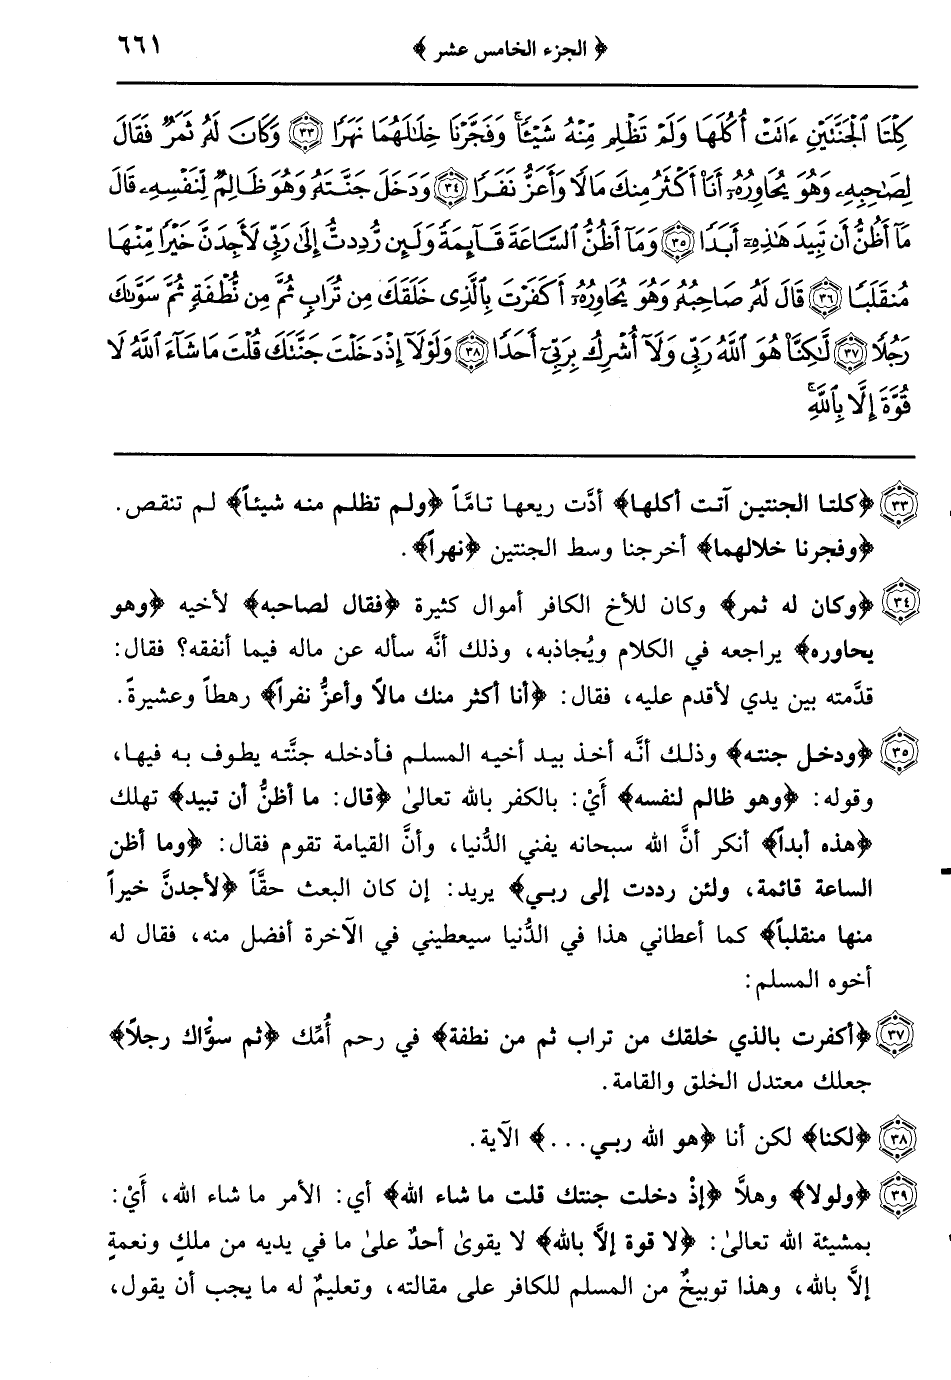 ﴿ الجزء الخامس عشر ﴾ ٦٦١
كِلْتَا ٱلْجَنَّتَيْنِ ءَاتَتْ أُكُلَهَا وَلَمْ تَظْلِم مِّنْهُ شَيْـًٔا ۚ وَفَجَّرْنَا خِلَٰلَهُمَا نَهَرًا ٣٣ وَكَانَ لَهُۥ ثَمَرٌ فَقَالَ
لِصَٰحِبِهِۦ وَهُوَ يُحَاوِرُهُۥٓ أَنَا۠ أَكْثَرُ مِنكَ مَالًا وَأَعَزُّ نَفَرًا ٣٤ وَدَخَلَ جَنَّتَهُۥ وَهُوَ ظَالِمٌ لِّنَفْسِهِۦ قَالَ
مَآ أَظُنُّ أَن تَبِيدَ هَٰذِهِۦٓ أَبَدًا ٣٥ وَمَآ أَظُنُّ ٱلسَّاعَةَ قَآئِمَةً وَلَئِن رُّدِدتُّ إِلَىٰ رَبِّى لَأَجِدَنَّ خَيْرًا مِّنْهَا
مُنقَلَبًا ٣٦ قَالَ لَهُۥ صَاحِبُهُۥ وَهُوَ يُحَاوِرُهُۥٓ أَكَفَرْتَ بِٱلَّذِى خَلَقَكَ مِن تُرَابٍ ثُمَّ مِن نُّطْفَةٍ ثُمَّ سَوَّىٰكَ
رَجُلًا ٣٧ لَّٰكِنَّا۠ هُوَ ٱللَّهُ رَبِّى وَلَآ أُشْرِكُ بِرَبِّىٓ أَحَدًا ٣٨ وَلَوْلَآ إِذْ دَخَلْتَ جَنَّتَكَ قُلْتَ مَا شَآءَ ٱللَّهُ لَا
قُوَّةَ إِلَّا بِٱللَّهِ ۚ
٣٣ ﴿كلتا الجنتين آتت أكلها﴾ أدَّت ريعها تامَّاً ﴿ولم تظلم منه شيئاً﴾ لم تنقص.
﴿وفجرنا خلالهما﴾ أخرجنا وسط الجنتين ﴿نهراً﴾.
٣٤ ﴿وكان له ثمر﴾ وكان للأخ الكافر أموال كثيرة ﴿فقال لصاحبه﴾ لأخيه ﴿وهو
يحاوره﴾ يراجعه في الكلام ويُجاذبه، وذلك أنَّه سأله عن ماله فيما أنفقه؟ فقال:
قدَّمته بين يدي لأقدم عليه، فقال: ﴿أنا أكثر منك مالاً وأعزُّ نفراً﴾ رهطاً وعشيرةً.
٣٥ ﴿ودخل جنته﴾ وذلك أنَّه أخذ بيد أخيه المسلم فأدخله جنَّته يطوف به فيها،
وقوله: ﴿وهو ظالم لنفسه﴾ أَيْ: بالكفر بالله تعالىٰ ﴿قال: ما أظنُّ أن تبيد﴾ تهلك
﴿هذه أبداً﴾ أنكر أنَّ الله سبحانه يفني الدُّنيا، وأنَّ القيامة تقوم فقال: ﴿وما أظن
الساعة قائمة، ولئن رددت إلى ربي﴾ يريد: إن كان البعث حقَّاً ﴿لأجدنَّ خيراً
منها منقلباً﴾ كما أعطاني هذا في الدُّنيا سيعطيني في الآخرة أفضل منه، فقال له
أخوه المسلم:
٣٧ ﴿أكفرت بالذي خلقك من تراب ثم من نطفة﴾ في رحم أُمِّك ﴿ثم سوَّاك رجلاً﴾
جعلك معتدل الخلق والقامة.
٣٨ ﴿لكنا﴾ لكن أنا ﴿هو الله ربي...﴾ الآية.
٣٩ ﴿ولولا﴾ وهلاَّ ﴿إذْ دخلت جنتك قلت ما شاء الله﴾ أي: الأمر ما شاء الله، أَيْ:
بمشيئة الله تعالىٰ: ﴿لا قوة إلاَّ بالله﴾ لا يقوىٰ أحدٌ علىٰ ما في يديه من ملكٍ ونعمةٍ
إلاَّ بالله، وهذا توبيخٌ من المسلم للكافر على مقالته، وتعليمٌ له ما يجب أن يقول،